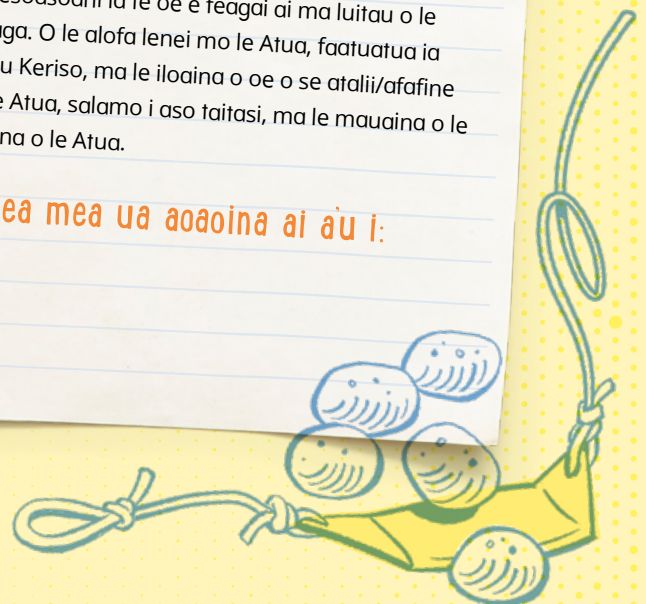 ia te oe e feagai ai ma luitau o le
O le alofa lenei mo le Atua, faatuatua ia
Keriso, ma le iloaina o oe o se atalii/afafine
Atua, salamo i aso taitasi, ma le mauaina o le
o le Atua.
mea ua aoaoina ai a'u i: